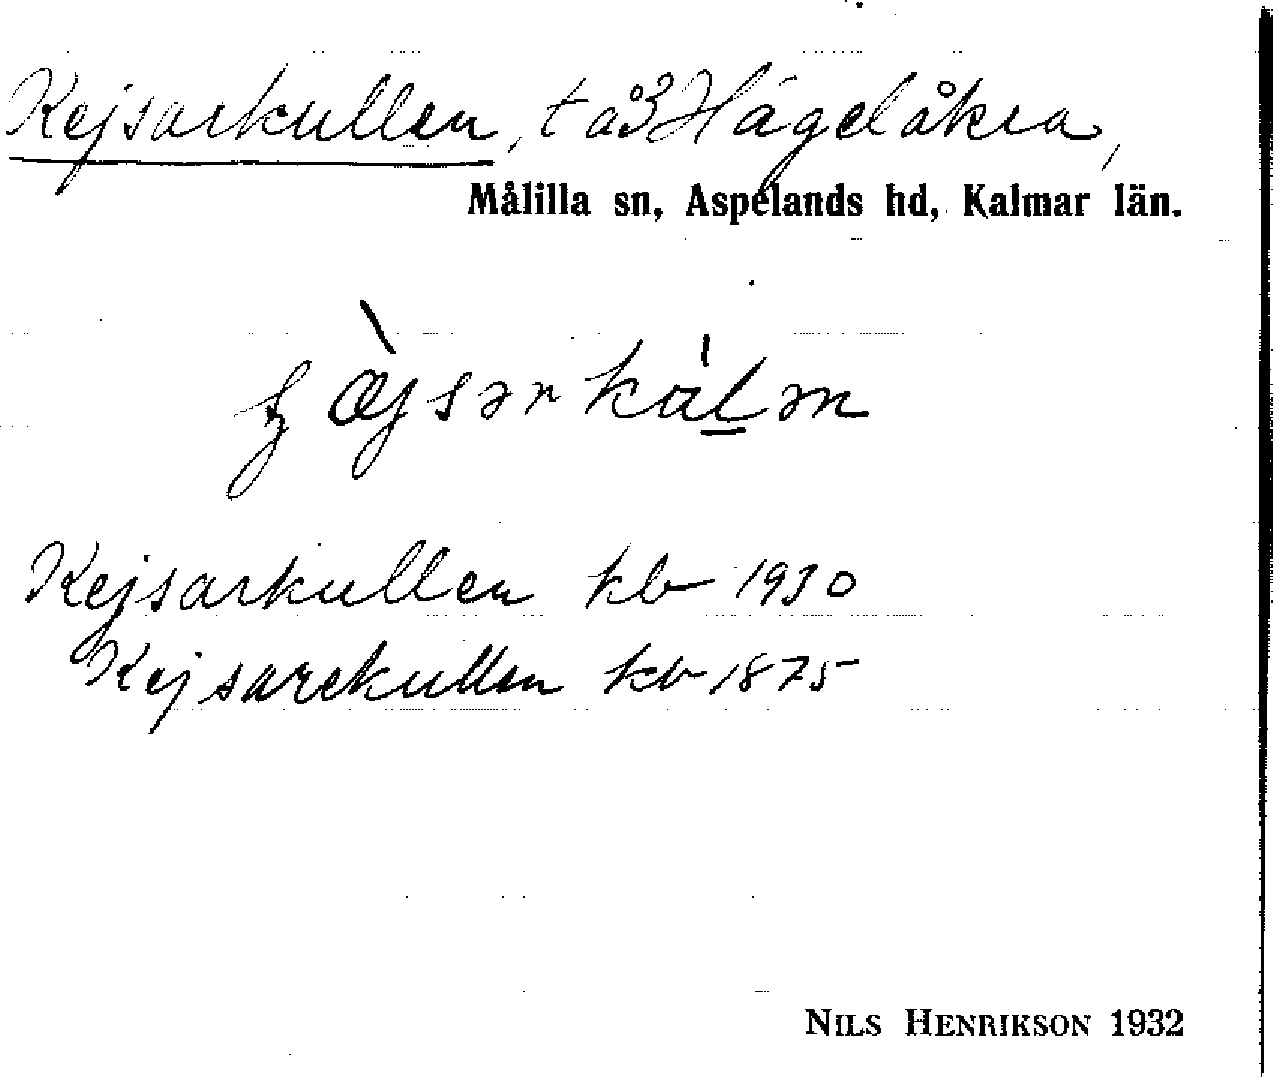 Kejsarkullen, t å3 Hägelåkra,
Målilla sn, Aspelands hd, Kalmar län.
Kejsarkullen kb 1930
Kejsarekullen kb 1875
NILS HENRIKSON 1932